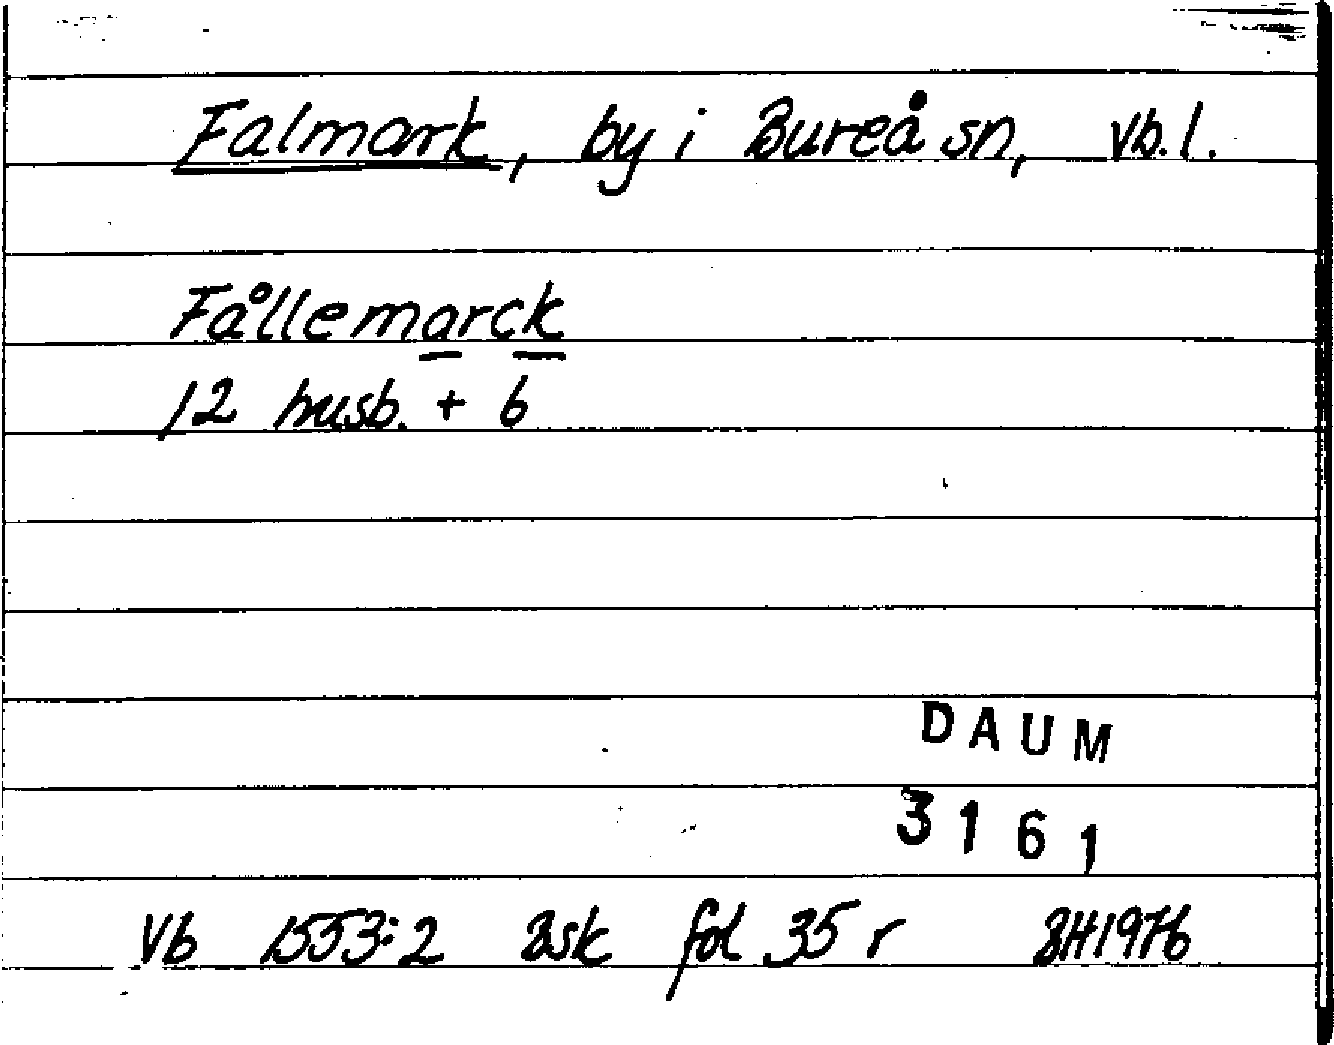 Falmark, by i Bureå sn, Vb.l.
Fållemarck
12 husb. + 6
DAUM
3161
Vb 1553:2 ask fol 35 r GH1976